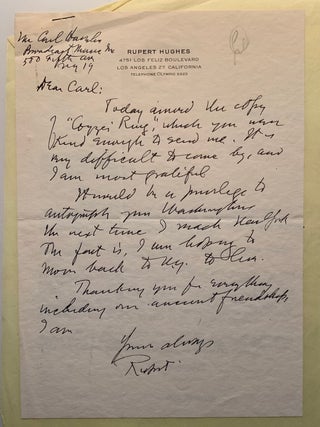 Mr Carl Haverlin
Broadcast Music Inc
580 Fifth Ave
N.Y. 19
RUPERT HUGHES
4751 LOS FELIZ BOULEVARD
LOS ANGELES 27, CALIFORNIA
TELEPHONE OLYMPIC
Dear Carl:
Today arrived the copy
of "Ring", which you were
kind enough to send me. It is
very difficult to come by, and
I am most grateful
It would be a privilege to
autograph your Washingtons
the next time I reach
The fact is, I am hoping to
move back to N.Y. to live.
Thanking you for everything
including our ancient friendship,
I am
Yours always
Rupert